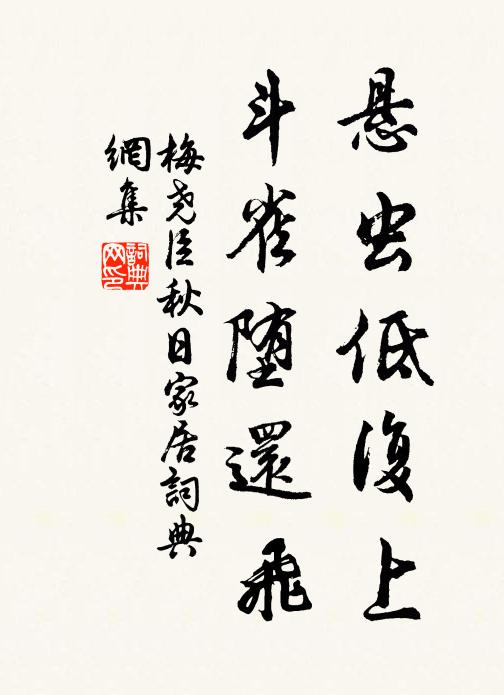 悬虫低復上
斗雀堕還飛
梅尧臣秋日家居詞典
網集
詞典
网印